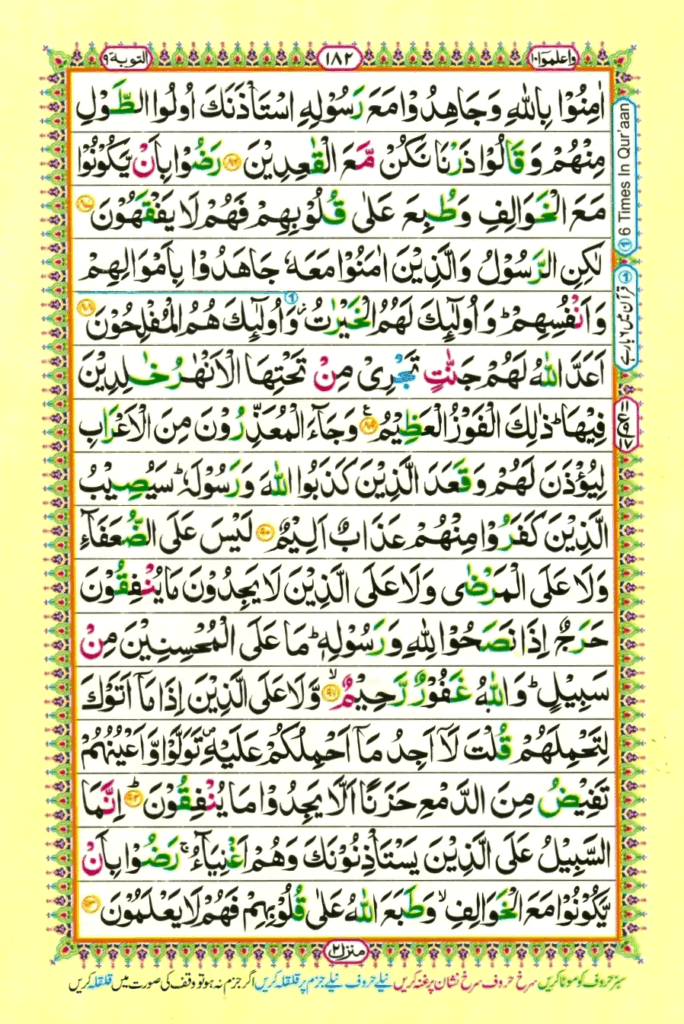 واعلموا ١٠
١٨٢
التوبة ٩
اٰمِنُوْا بِاللّٰهِ وَجَاهِدُوْا مَعَ رَسُوْلِهِ اسْتَاْذَنَكَ اُولُوا الطَّوْلِ
مِنْهُمْ وَقَالُوْا ذَرْنَا نَكُنْ مَّعَ الْقٰعِدِيْنَ ۝۸۶ رَضُوْا بِاَنْ يَّكُوْنُوْا
مَعَ الْخَوَالِفِ وَطُبِعَ عَلٰى قُلُوْبِهِمْ فَهُمْ لَا يَفْقَهُوْنَ ۝۸۷
لٰكِنِ الرَّسُوْلُ وَالَّذِيْنَ اٰمَنُوْا مَعَهٗ جَاهَدُوْا بِاَمْوَالِهِمْ
وَاَنْفُسِهِمْ ؕ وَاُولٰٓئِكَ لَهُمُ الْخَيْرٰتُ ؗ وَاُولٰٓئِكَ هُمُ الْمُفْلِحُوْنَ ۝۸۸
اَعَدَّ اللّٰهُ لَهُمْ جَنّٰتٍ تَجْرِىْ مِنْ تَحْتِهَا الْاَنْهٰرُ خٰلِدِيْنَ
فِيْهَا ؕ ذٰلِكَ الْفَوْزُ الْعَظِيْمُ ۝۸۹ وَجَآءَ الْمُعَذِّرُوْنَ مِنَ الْاَعْرَابِ
لِيُؤْذَنَ لَهُمْ وَقَعَدَ الَّذِيْنَ كَذَبُوا اللّٰهَ وَرَسُوْلَهٗ ؕ سَيُصِيْبُ
الَّذِيْنَ كَفَرُوْا مِنْهُمْ عَذَابٌ اَلِيْمٌ ۝۹۰ لَيْسَ عَلَى الضُّعَفَآءِ
وَلَا عَلَى الْمَرْضٰى وَلَا عَلَى الَّذِيْنَ لَا يَجِدُوْنَ مَا يُنْفِقُوْنَ
حَرَجٌ اِذَا نَصَحُوْا لِلّٰهِ وَرَسُوْلِهٖ ؕ مَا عَلَى الْمُحْسِنِيْنَ مِنْ
سَبِيْلٍ ؕ وَاللّٰهُ غَفُوْرٌ رَّحِيْمٌ ۝۹۱ ۙ وَّلَا عَلَى الَّذِيْنَ اِذَا مَاۤ اَتَوْكَ
لِتَحْمِلَهُمْ قُلْتَ لَاۤ اَجِدُ مَاۤ اَحْمِلُكُمْ عَلَيْهِ ۪ تَوَلَّوْا وَّاَعْيُنُهُمْ
تَفِيْضُ مِنَ الدَّمْعِ حَزَنًا اَلَّا يَجِدُوْا مَا يُنْفِقُوْنَ ۝۹۲ ؕ اِنَّمَا
السَّبِيْلُ عَلَى الَّذِيْنَ يَسْتَاْذِنُوْنَكَ وَهُمْ اَغْنِيَآءُ ۚ رَضُوْا بِاَنْ
يَّكُوْنُوْا مَعَ الْخَوَالِفِ ۙ وَطَبَعَ اللّٰهُ عَلٰى قُلُوْبِهِمْ فَهُمْ لَا يَعْلَمُوْنَ ۝۹۳
① 6 Times In Qur'aan
منزل ٢
سبز حروف کو موٹا کریں سرخ حروف سرخ نشان پر غنہ کریں نیلے حروف نیلے جزم پر قلقلہ کریں اگر جزم نہ ہو تو وقف کی صورت میں قلقلہ کریں